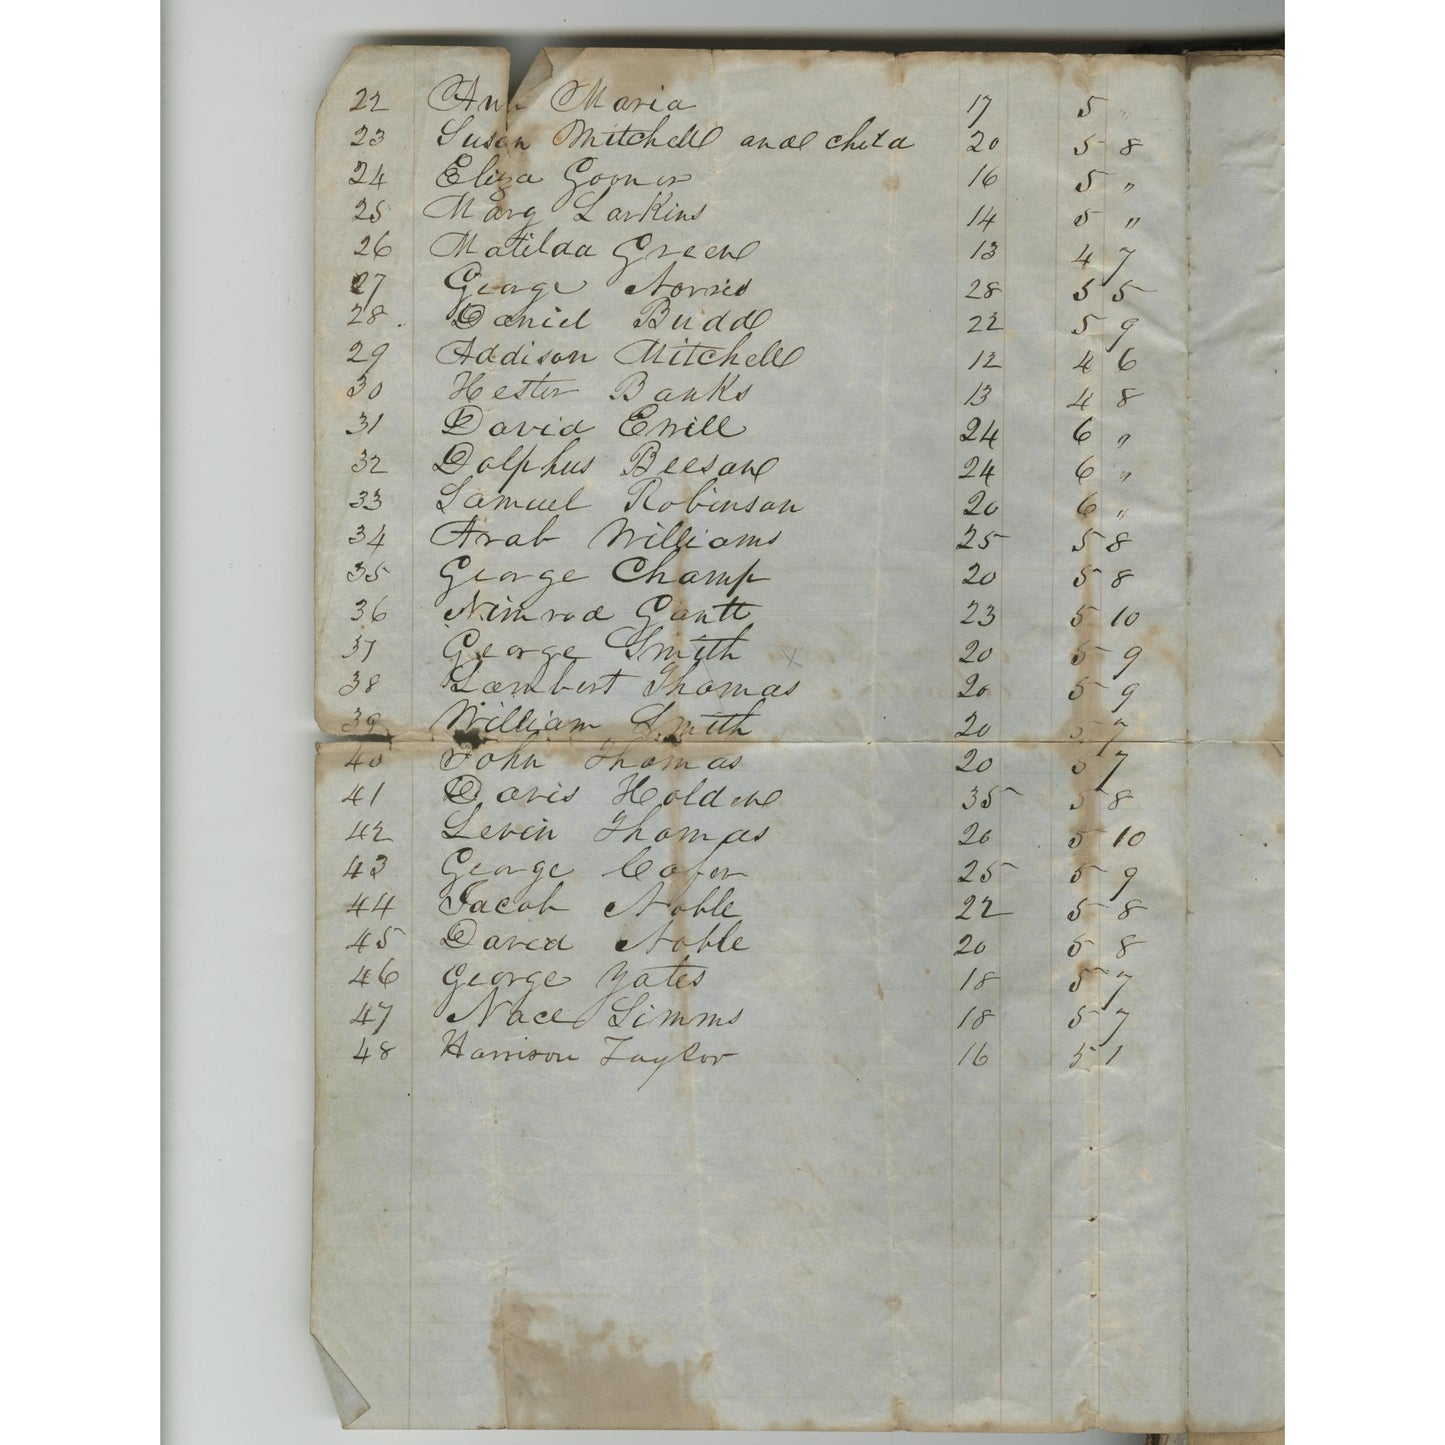 22 Ann Maria 17 5 "
23 Susan Mitchell and child 20 5 8
24 Eliza Goonor 16 5 "
25 Mary Larkins 14 5 "
26 Matilda Green 13 4 7
27 George Norris 28 5 5
28. Daniel Budd 22 5 9
29 Addison Mitchell 12 4 6
30 Hester Banks 13 4 8
31 David Ewell 24 6 "
32 Dolphus Beeson 24 6 "
33 Samuel Robinson 20 6 "
34 Arab Williams 25 5 8
35 George Champ 20 5 8
36 Nimrod Gantt 23 5 10
37 George Smith x 20 5 9
38 Lambert Thomas 20 5 9
39 William Smith 20 5 7
40 John Thomas 20 5 7
41 Davis Holden 35 5 8
42 Levin Thomas 20 5 10
43 George Cofer 25 5 9
44 Jacob Noble 22 5 8
45 David Noble 20 5 8
46 George Yates 18 5 7
47 Nace Simms 18 5 7
48 Harrison Taylor 16 5 1